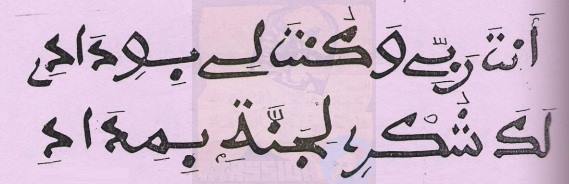 أَنتَ رَبِّي وَكُنتَ لِي بِوِدَادِ
لَكَ شُكْرِي لِجَنَّةِ بِمِدَادِ